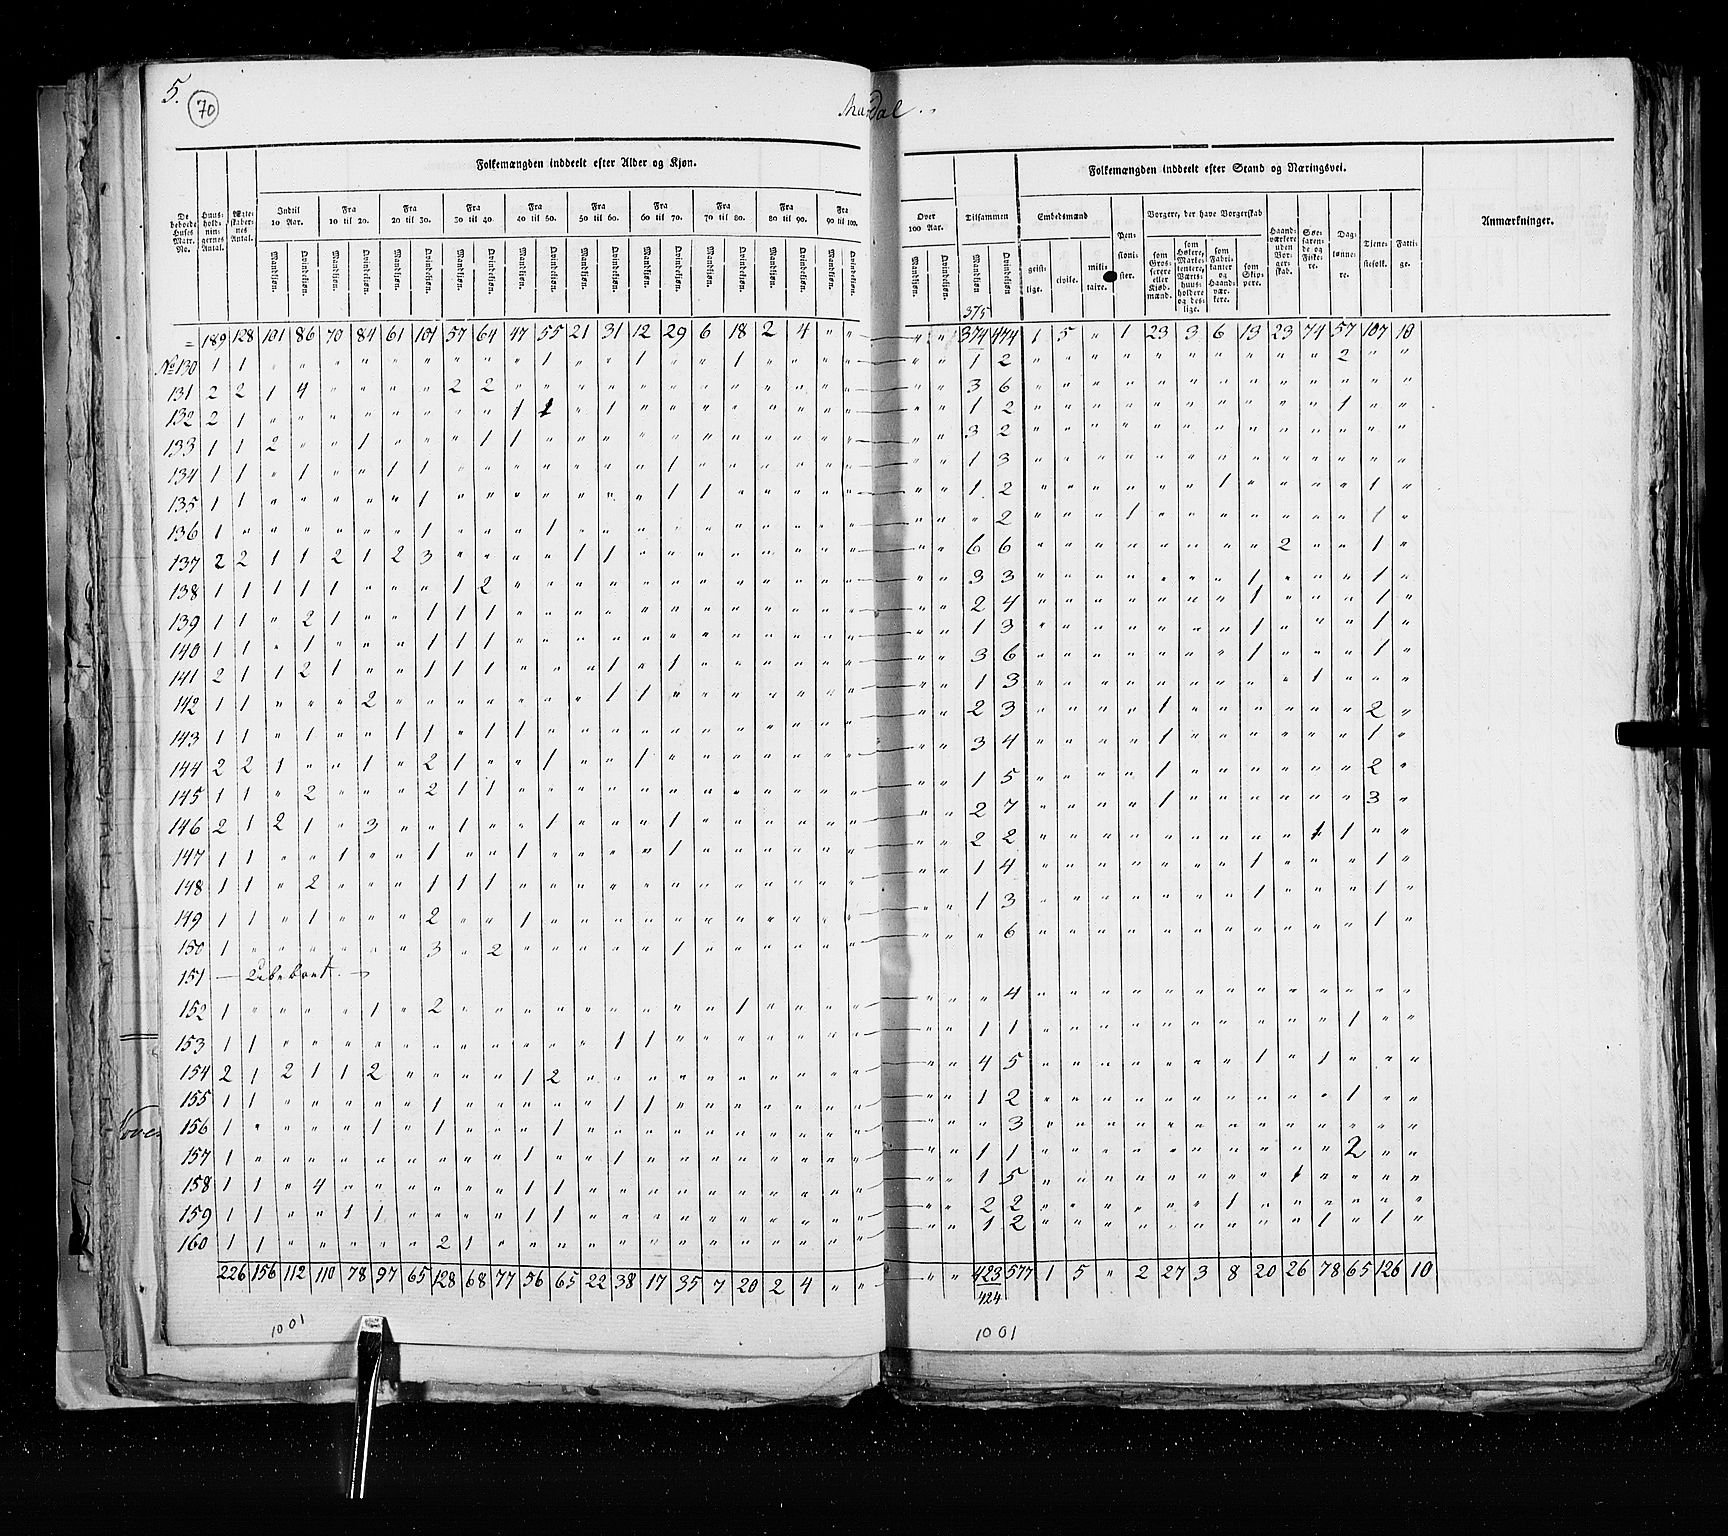 5.
70
Mandal
Folkemængden inddeelt efter Alder og Kjøn.
De beboede Huses Matr. No.
Huus-holdningernes Antal.
Ægteskabernes Antal.
Indtil 10 Aar.
Fra 10 til 20.
Fra 20 til 30.
Fra 30 til 40.
Fra 40 til 50.
Fra 50 til 60.
Fra 60 til 70.
Fra 70 til 80.
Fra 80 til 90.
Fra 90 til 100.
Mandkjøn. Qvindekjøn. Mandkjøn. Qvindekjøn. Mandkjøn. Qvindekjøn. Mandkjøn. Qvindekjøn. Mandkjøn. Qvindekjøn. Mandkjøn. Qvindekjøn. Mandkjøn. Qvindekjøn. Mandkjøn. Qvindekjøn. Mandkjøn. Qvindekjøn. Mandkjøn. Qvindekjøn.
Over 100 Aar.
Mandkjøn. Qvindekjøn.
Tilsammen
Mandkjøn. Qvindekjøn
Folkemængden inddeelt efter Stand og Næringsvei.
Embedsmænd
geistlige. civile. militaire.
Pensionister.
Borgere, der have Borgerskab
som Grosserere eller Kjøbmænd.
som Høkere, Marketentere, Værtshuusholdere og deslige.
som Fabrikanter og Haandværkere.
som Skippere.
Haandværkere uden Borgerskab.
Søefarende og Fiskere.
Daglønnere.
Tjenestefolk.
Fattige.
Anmærkninger.
375
= 189 128 101 86 70 84 61 101 57 64 47 55 21 31 12 29 6 18 2 4 " " " " 374 474 1 5 " 1 23 3 6 13 23 74 57 107 10
No 130 1 1 " " " " " " " " " 1 " " 1 " " 1 " " " " " " 1 2 " " " " " " " " " " 2 " "
131 2 2 1 4 " " " " 2 2 " " " " " " " " " " " " " " 3 6 " " " " " " " " " " " " "
132 2 1 " " " " " " " " 1 1 " 1 " " " " " " " " " " 1 2 " " " " " " " " " " 1 " "
133 1 1 2 " " 1 " " " 1 1 " " " " " " " " " " " " " 3 2 " " " " " " " " " " " " "
134 1 1 " 1 " " 1 1 " " " " " " " 1 " " " " " " " " 1 3 " " " " " " " " " " " " "
135 1 1 " " " " " 1 " " " " " " " 1 1 " " " " " " " 1 2 " " " " " " 1 " " " " 1 "
136 1 " " " " " " 1 " " " 1 " " " " " " " " " " " " " 2 " " " 1 " " " " " " " 1 "
137 2 2 1 1 2 1 2 3 " " " " 1 1 " " " " " " " " " " 6 6 " " " " " " " " 2 " " 1 "
138 1 1 1 1 1 " " " 1 2 " " " " " " " " " " " " " " 3 3 " " " " " " " 1 " " " 1 "
139 1 1 " 2 1 " " 1 1 1 " " " " " " " " " " " " " " 2 4 " " " " " " " 1 " " " 1 "
140 1 1 " 1 " " " 1 1 1 " " " " " " " " " " " " " " 1 3 " " " " " " " 1 " " " 1 "
141 2 1 1 2 1 " " 1 1 1 " " " 1 " 1 " " " " " " " " 3 6 " " " " " " " 1 " " " 1 "
142 1 1 " " " 2 " " " " " " " 1 1 " " " " " " " " " 1 3 " " " " " " " " " 1 " " "
143 1 1 " 1 " " 1 1 " 1 1 " " " " " " " " " " " " " 2 3 " " " " 1 " " " " " " 2 "
144 2 2 1 " " 1 " 2 1 " " 1 " " 1 " " " " " " " " " 3 4 " " " " 1 " " " " " " 1 "
145 1 1 " 2 " " " 2 1 1 " " " " " " " " " " " " " " 1 5 " " " " 1 " " " " " " 2 "
146 2 1 2 1 " 3 " " 1 " " 1 " " " 1 " " " " " " " " 2 7 " " " " 1 " " " " " " 3 "
147 1 1 " " 1 " " 1 " " 1 " " " " 1 " " " " " " " " 2 2 " " " " " " " " " 1 1 " "
148 1 1 " 2 " " " 1 1 1 " " " " " " " " " " " " " " 1 4 " " " " " " " 1 " " " 1 "
149 1 1 " 1 " " " 2 " " 1 " " " " " " " " " " " " " 1 3 " " " " " " " 1 " " " 1 "
150 1 " " " " " " 3 " 2 " " " " " 1 " " " " " " " " " 6 " " " " " " " " " " " 1 "
151 — Ubeboet. —
152 1 " " " " 1 " 2 " " " " " " " " " 1 " " " " " " " 4 " " " " " " " " " " " " "
153 1 1 " " " " " " " " " " " 1 1 " " " " " " " " " 1 1 " " " " " " " " " " 1 " "
154 2 1 2 1 1 2 " " " " 1 2 " " " " " " " " " " " " 4 5 " " " " " " " 1 " 1 " " "
155 1 1 " " " " " 1 " " " " " 1 1 " " " " " " " " " 1 2 " " " " " " " " " " 1 " "
156 1 " " " " 1 " 1 " " " 1 " " " " " " " " " " " " " 3 " " " " " " " " " " " " "
157 1 " " " " " " " " " 1 " " 1 " " " " " " " " " " 1 1 " " " " " " " " " " 2 " "
158 1 1 " 4 " " " " " " 1 1 " " " " " " " " " " " " 1 5 " " " " " " " " 1 " " " "
159 1 1 " " 1 1 " " " " 1 1 " " " " " " " " " " " " 2 2 " " " " " " 1 " " " " " "
160 1 1 " " " " " 2 1 " " " " " " " " " " " " " " " 1 2 " " " " " " " " " 1 " 1 "
226 156 112 110 78 97 65 128 68 77 56 65 22 38 17 35 7 20 2 4 " " " " 423 577 1 5 " 2 27 3 8 20 26 78 65 126 10
424
1001
1001